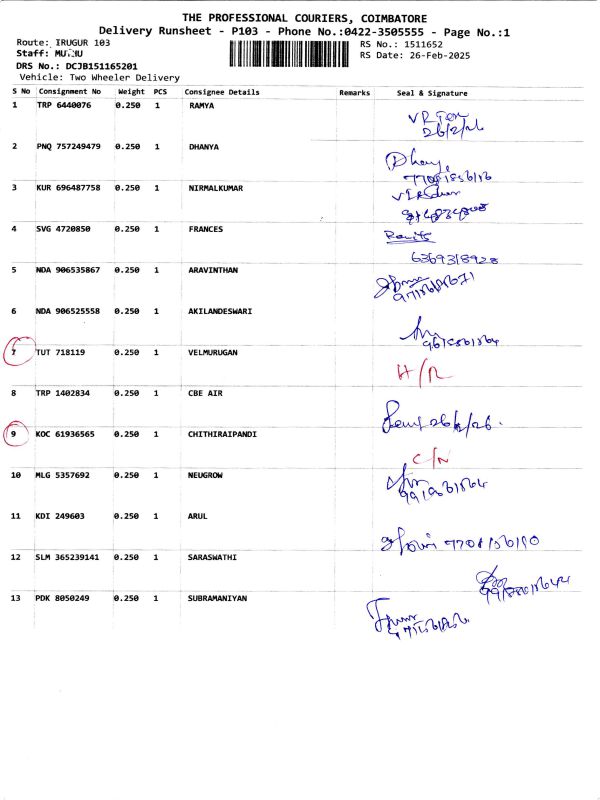 THE PROFESSIONAL COURIERS, COIMBATORE
Delivery Runsheet - P103 - Phone No.:0422-3505555 - Page No.:1
Route: IRUGUR 103
RS No.: 1511652
Staff:
RS Date: 26-Feb-2025
DRS No.: DCJB151165201
Vehicle: Two Wheeler Delivery
S No Consignment No Weight PCS Consignee Details Remarks Seal & Signature
1 TRP 6440076 0.250 1 RAMYA
26/2/26
2 PNQ 757249479 0.250 1 DHANYA
3 KUR 696487758 0.250 1 NIRMALKUMAR
4 SVG 4720850 0.250 1 FRANCES
6369318928
5 NDA 906535867 0.250 1 ARAVINTHAN
6 NDA 906525558 0.250 1 AKILANDESWARI
7 TUT 718119 0.250 1 VELMURUGAN
8 TRP 1402834 0.250 1 CBE AIR
26/2/26.
9 KOC 61936565 0.250 1 CHITHIRAIPANDI
C/N
10 MLG 5357692 0.250 1 NEUGROW
11 KDI 249603 0.250 1 ARUL
12 SLM 365239141 0.250 1 SARASWATHI
13 PDK 8050249 0.250 1 SUBRAMANIYAN